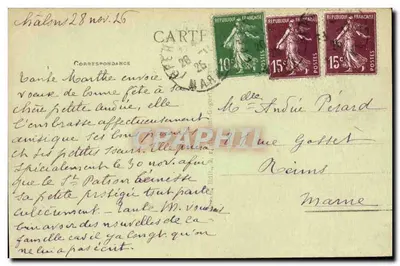 Châlons 28 nov. 25
CARTE
CORRESPONDANCE
Tante Marthe envoie
vœux de bonne fête à sa
chère petite Andrée, elle
l'embrasse affectueusement
ainsi que ses bons
et ses petites sœurs, elle
spécialement le 30 nov. afin
que le St Patron bénisse
sa petite protégée tout
Tante M. voudrait
bien avoir des nouvelles de la
famille car il y a longt. qu'on
ne lui a pas écrit
REPUBLIQUE FRANÇAISE
10c
POSTES
REPUBLIQUE FRANÇAISE
15c
POSTES
REPUBLIQUE FRANÇAISE
15c
POSTES
MAR
Mlle Andrée Pérard
rue Gosset
Reims
Marne